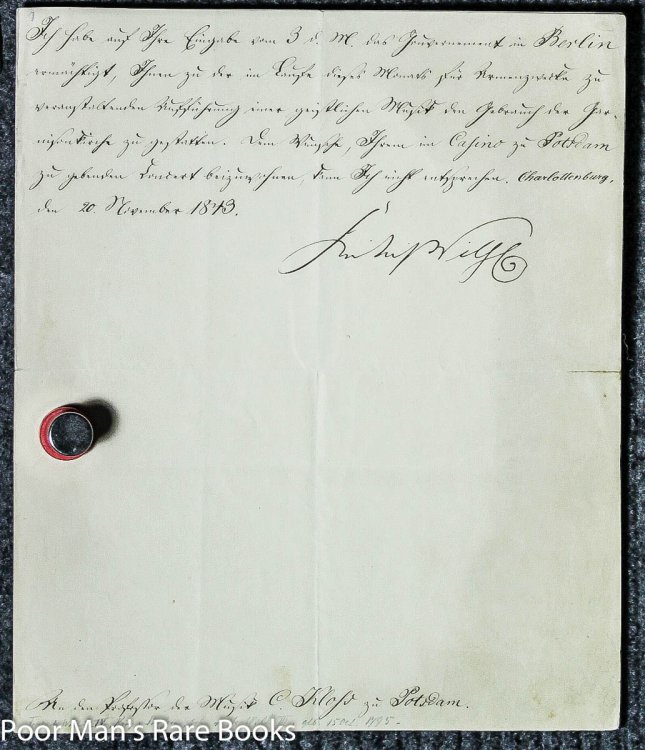 Ich habe auf Ihre Eingabe vom 3 d. M. das Gouvernement in Berlin
ermächtigt, Ihnen zu der im Laufe dieses Monats für Armenzwecke zu
veranstaltenden Aufführung einer geistlichen Musik den Gebrauch der Gar-
nisonkirche zu gestatten. Dem Wunsche, Ihrem im Casino zu Potsdam
zu gebenden Concert beizuwohnen, kann Ich nicht entsprechen. Charlottenburg,
den 20. November 1843.
Friedrich Wilh
An den Professor der Musik C. Kloß zu Potsdam.
15 Oct. 1795.
Poor Man's Rare Books